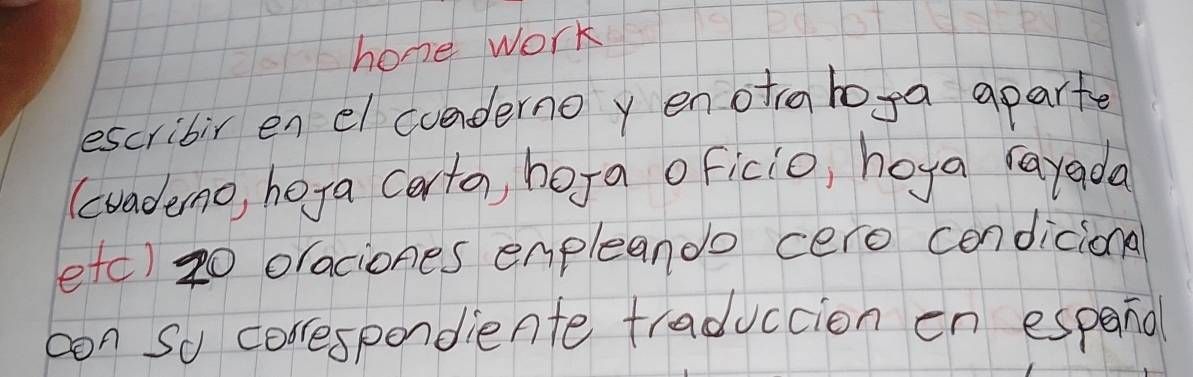 home work
escribir en el cuaderno y en otra hoja aparte
(cuaderno, hoja carta, hoja oficio, hoya rayada
etc) 20 oraciones empleando cero condicional
con su correspondiente traduccion en español